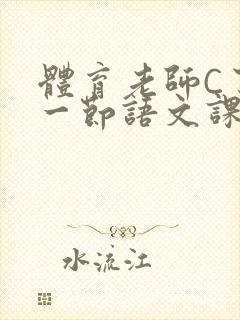 體育老師C
一節語文課
水流江